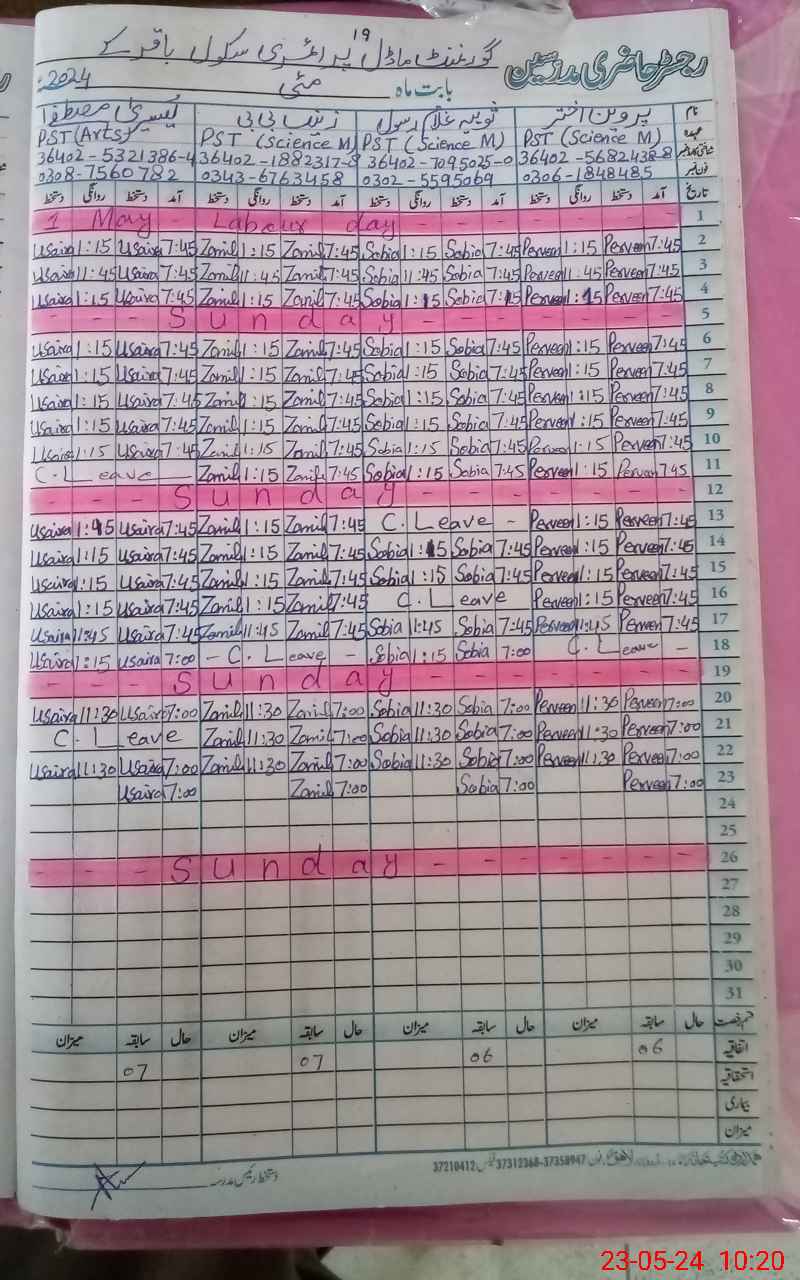 گورنمنٹ ماڈل پرائمری سکول باقر کے
رجسٹر حاضری مدرسین
بابت ماہ مئی 2024
نام پروین اختر ثوبیہ غلام رسول زینب بی بی یسریٰ مصطفیٰ
عہدہ PST (Science M) PST (Science M) PST (Science M) PST (Arts)
36402-5682438-8 36402-7095025-0 36402-1882317-8 36402-5321386-4
فون نمبر 0306-1848485 0302-5595069 0343-6763458 0308-7560782
تاریخ آمد دستخط روانگی دستخط آمد دستخط روانگی دستخط آمد دستخط روانگی دستخط آمد دستخط روانگی دستخط
1 May - Labour day - - - - - - - 1
Usaira 1:15 Usaira 7:45 Zanib 1:15 Zanib 7:45 Sobia 1:15 Sobia 7:45 Perveen 1:15 Perveen 7:45 2
Usaira 11:45 Usaira 7:45 Zanib 11:45 Zanib 7:45 Sobia 11:45 Sobia 7:45 Perveen 11:45 Perveen 7:45 3
Usaira 1:15 Usaira 7:45 Zanib 1:15 Zanib 7:45 Sobia 1:15 Sobia 7:15 Perveen 1:15 Perveen 7:45 4
- - - S u n d a y - - - - - - - 5
Usaira 1:15 Usaira 7:45 Zanib 1:15 Zanib 7:45 Sobia 1:15 Sobia 7:45 Perveen 1:15 Perveen 7:45 6
Usaira 1:15 Usaira 7:45 Zanib 1:15 Zanib 7:45 Sobia 1:15 Sobia 7:45 Perveen 1:15 Perveen 7:45 7
Usaira 1:15 Usaira 7:45 Zanib 1:15 Zanib 7:45 Sobia 1:15 Sobia 7:45 Perveen 1:15 Perveen 7:45 8
Usaira 1:15 Usaira 7:45 Zanib 1:15 Zanib 7:45 Sobia 1:15 Sobia 7:45 Perveen 1:15 Perveen 7:45 9
Usaira 1:15 Usaira 7:45 Zanib 1:15 Zanib 7:45 Sobia 1:15 Sobia 7:45 Perveen 1:15 Perveen 7:45 10
C. Leave Zanib 1:15 Zanib 7:45 Sobia 1:15 Sobia 7:45 Perveen 1:15 Perveen 7:45 11
- - - S u n d a y - - - - - - - 12
Usaira 1:15 Usaira 7:45 Zanib 1:15 Zanib 7:45 C. Leave - Perveen 1:15 Perveen 7:45 13
Usaira 1:15 Usaira 7:45 Zanib 1:15 Zanib 7:45 Sobia 1:15 Sobia 7:45 Perveen 1:15 Perveen 7:45 14
Usaira 1:15 Usaira 7:45 Zanib 1:15 Zanib 7:45 Sobia 1:15 Sobia 7:45 Perveen 1:15 Perveen 7:45 15
Usaira 1:15 Usaira 7:45 Zanib 1:15 Zanib 7:45 C. Leave Perveen 1:15 Perveen 7:45 16
Usaira 11:45 Usaira 7:45 Zanib 11:45 Zanib 7:45 Sobia 11:45 Sobia 7:45 Perveen 11:45 Perveen 7:45 17
Usaira 1:15 Usaira 7:00 - C. Leave - Sobia 1:15 Sobia 7:00 C. Leave - 18
- - - S u n d a y - - - - - - - 19
Usaira 11:30 Usaira 7:00 Zanib 11:30 Zanib 7:00 Sobia 11:30 Sobia 7:00 Perveen 11:30 Perveen 7:00 20
C. Leave Zanib 11:30 Zanib 7:00 Sobia 11:30 Sobia 7:00 Perveen 11:30 Perveen 7:00 21
Usaira 11:30 Usaira 7:00 Zanib 11:30 Zanib 7:00 Sobia 11:30 Sobia 7:00 Perveen 11:30 Perveen 7:00 22
Usaira 7:00 Zanib 7:00 Sobia 7:00 Perveen 7:00 23
24
25
- - - S u n d a y - - - - - - - 26
27
28
29
30
31
قسم رخصت حال سابقہ میزان حال سابقہ میزان حال سابقہ میزان حال سابقہ میزان
اتفاقیہ 06 06 07 07
استحقاقیہ
بیماری
میزان
37210412 37312368-37358947
دستخط رئیس مدرسہ
23-05-24 10:20